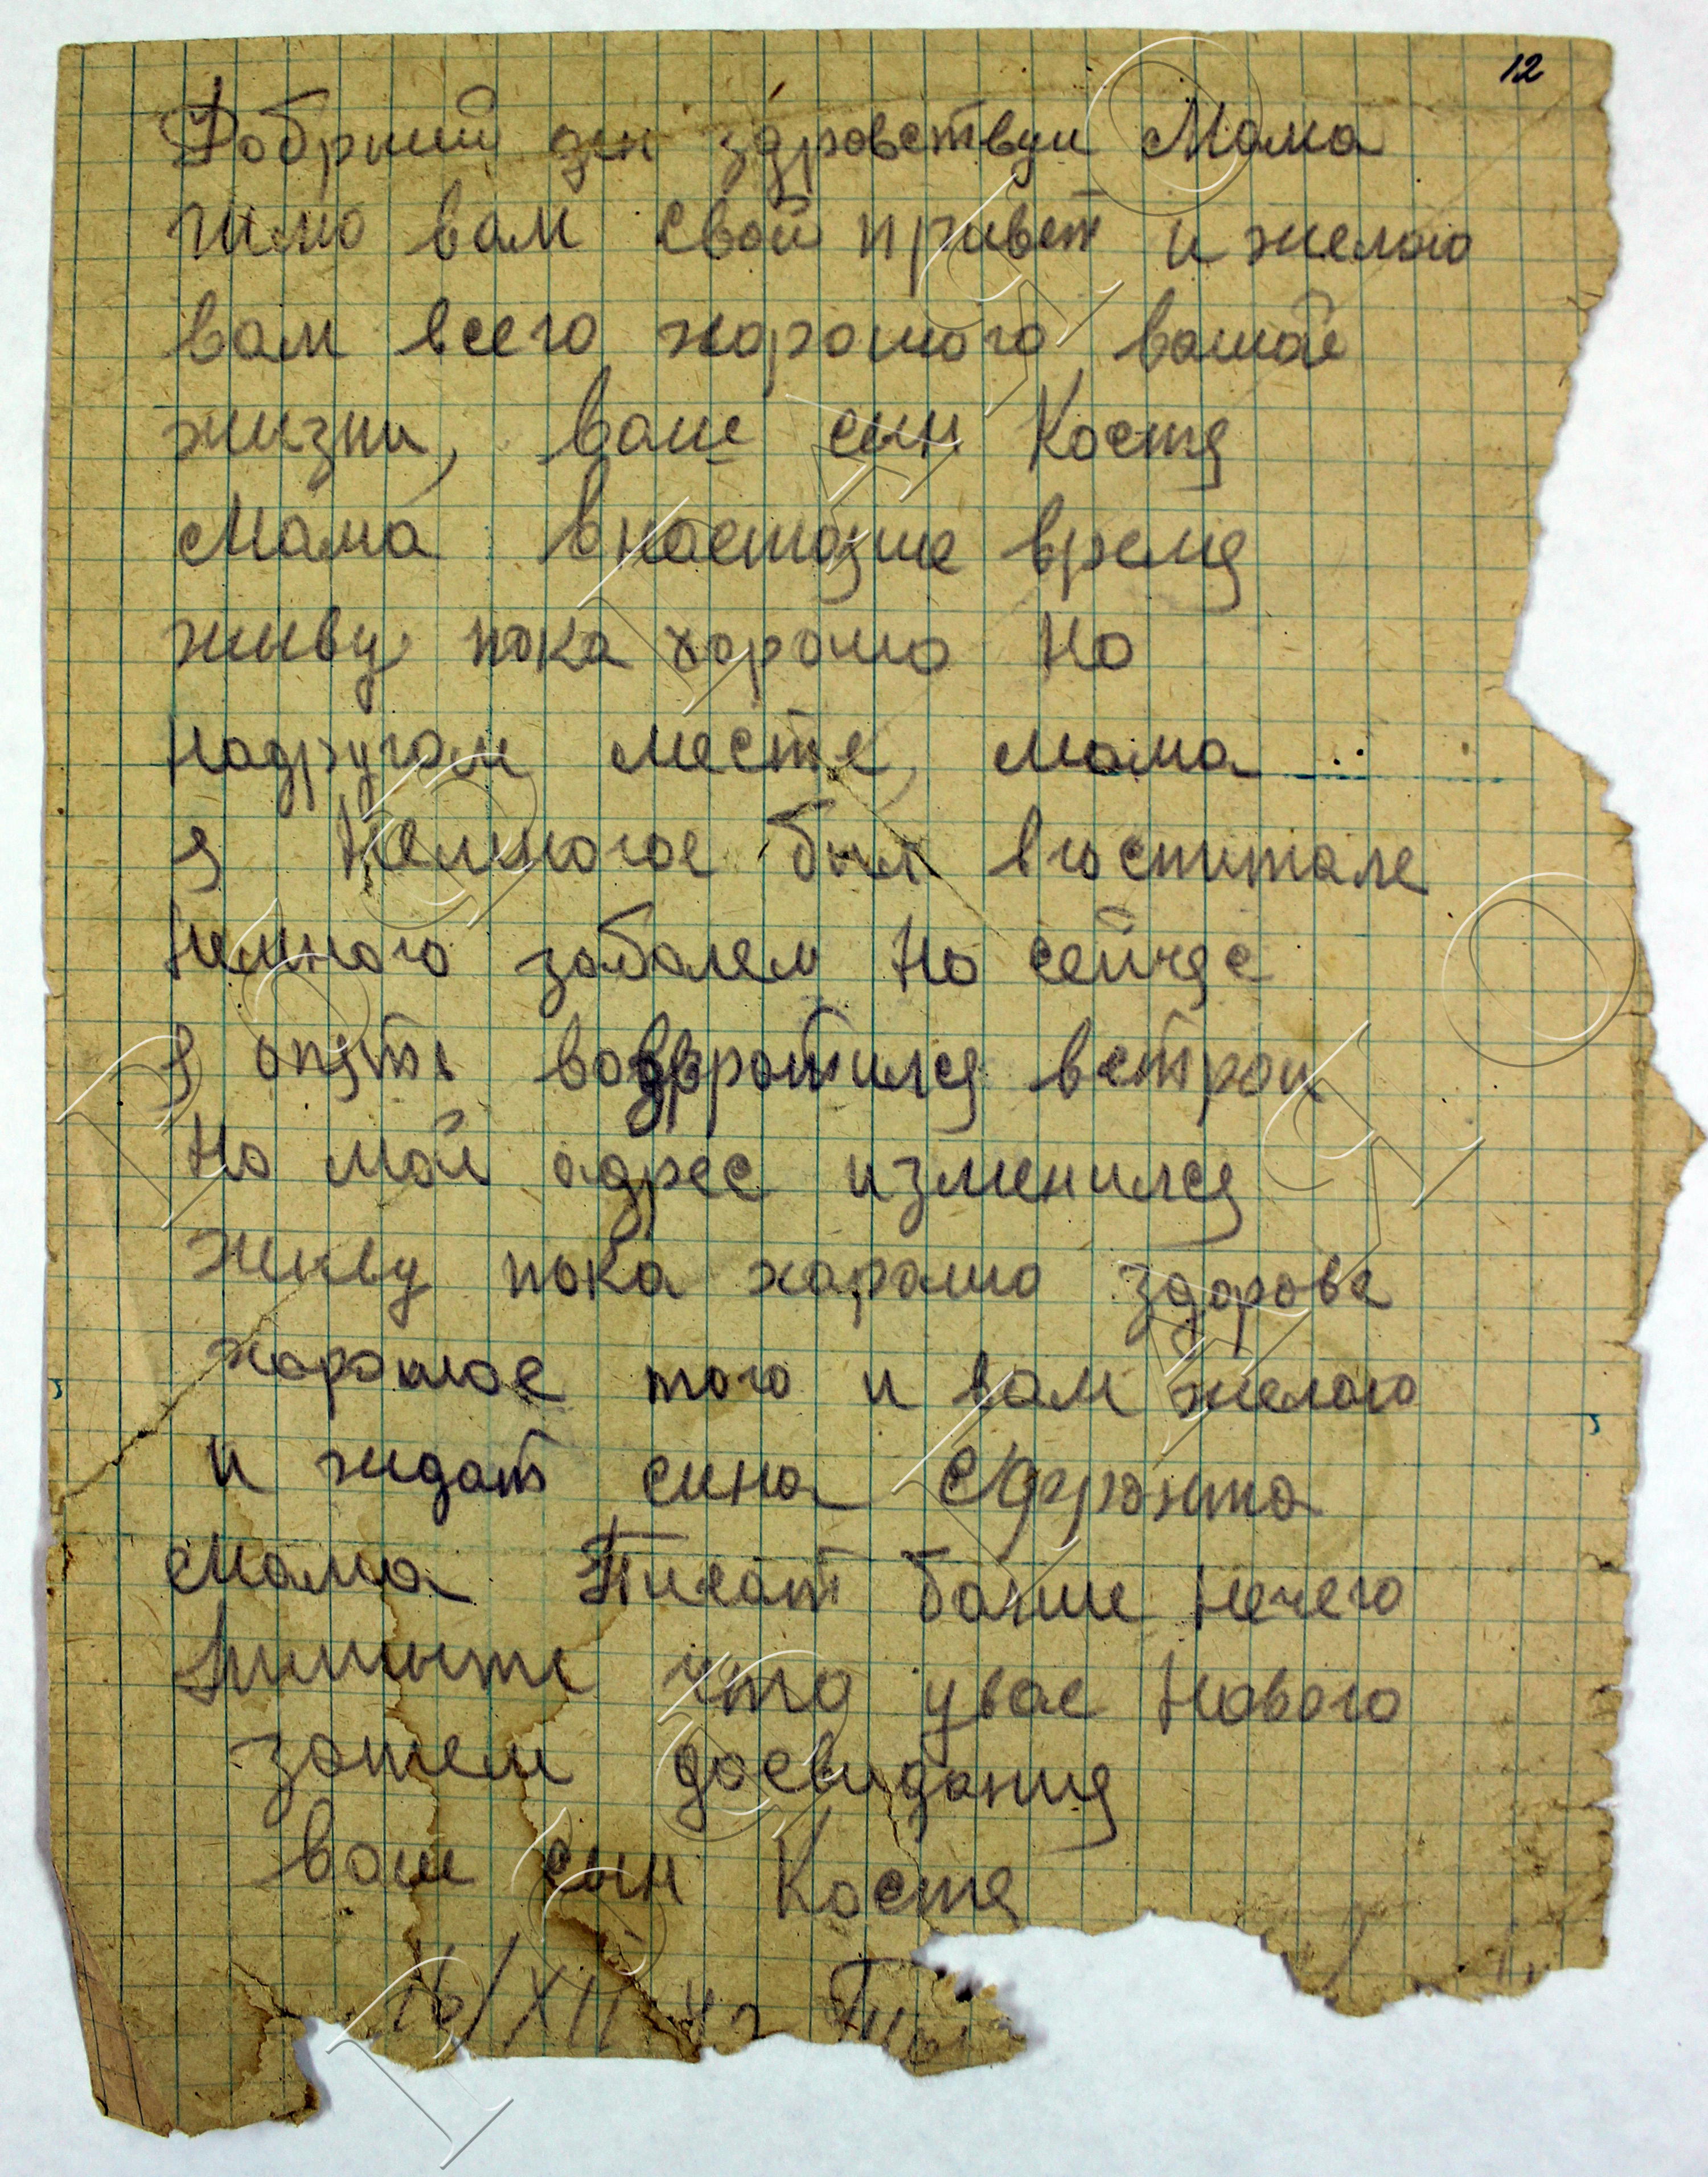 12
Добрший ден здровствуи Мама
чимо вам свой привет и желою
вам всего хорошого вашой
жизни, ваш сын Костя
Мама внастояше время
живу пока хорошо но
надругом месте, мама
я немногое был вгоспитале
немного заболем но сейчяс
я опять возвротился встрои
но мой адрес изменился
живу пока харошо здорове
хорошое того и вам желою
и ждат сина сфронта
мама писат болше нечего
пишыте что увас нового
затем досвидания
ваш сын Костя
16/XII 42